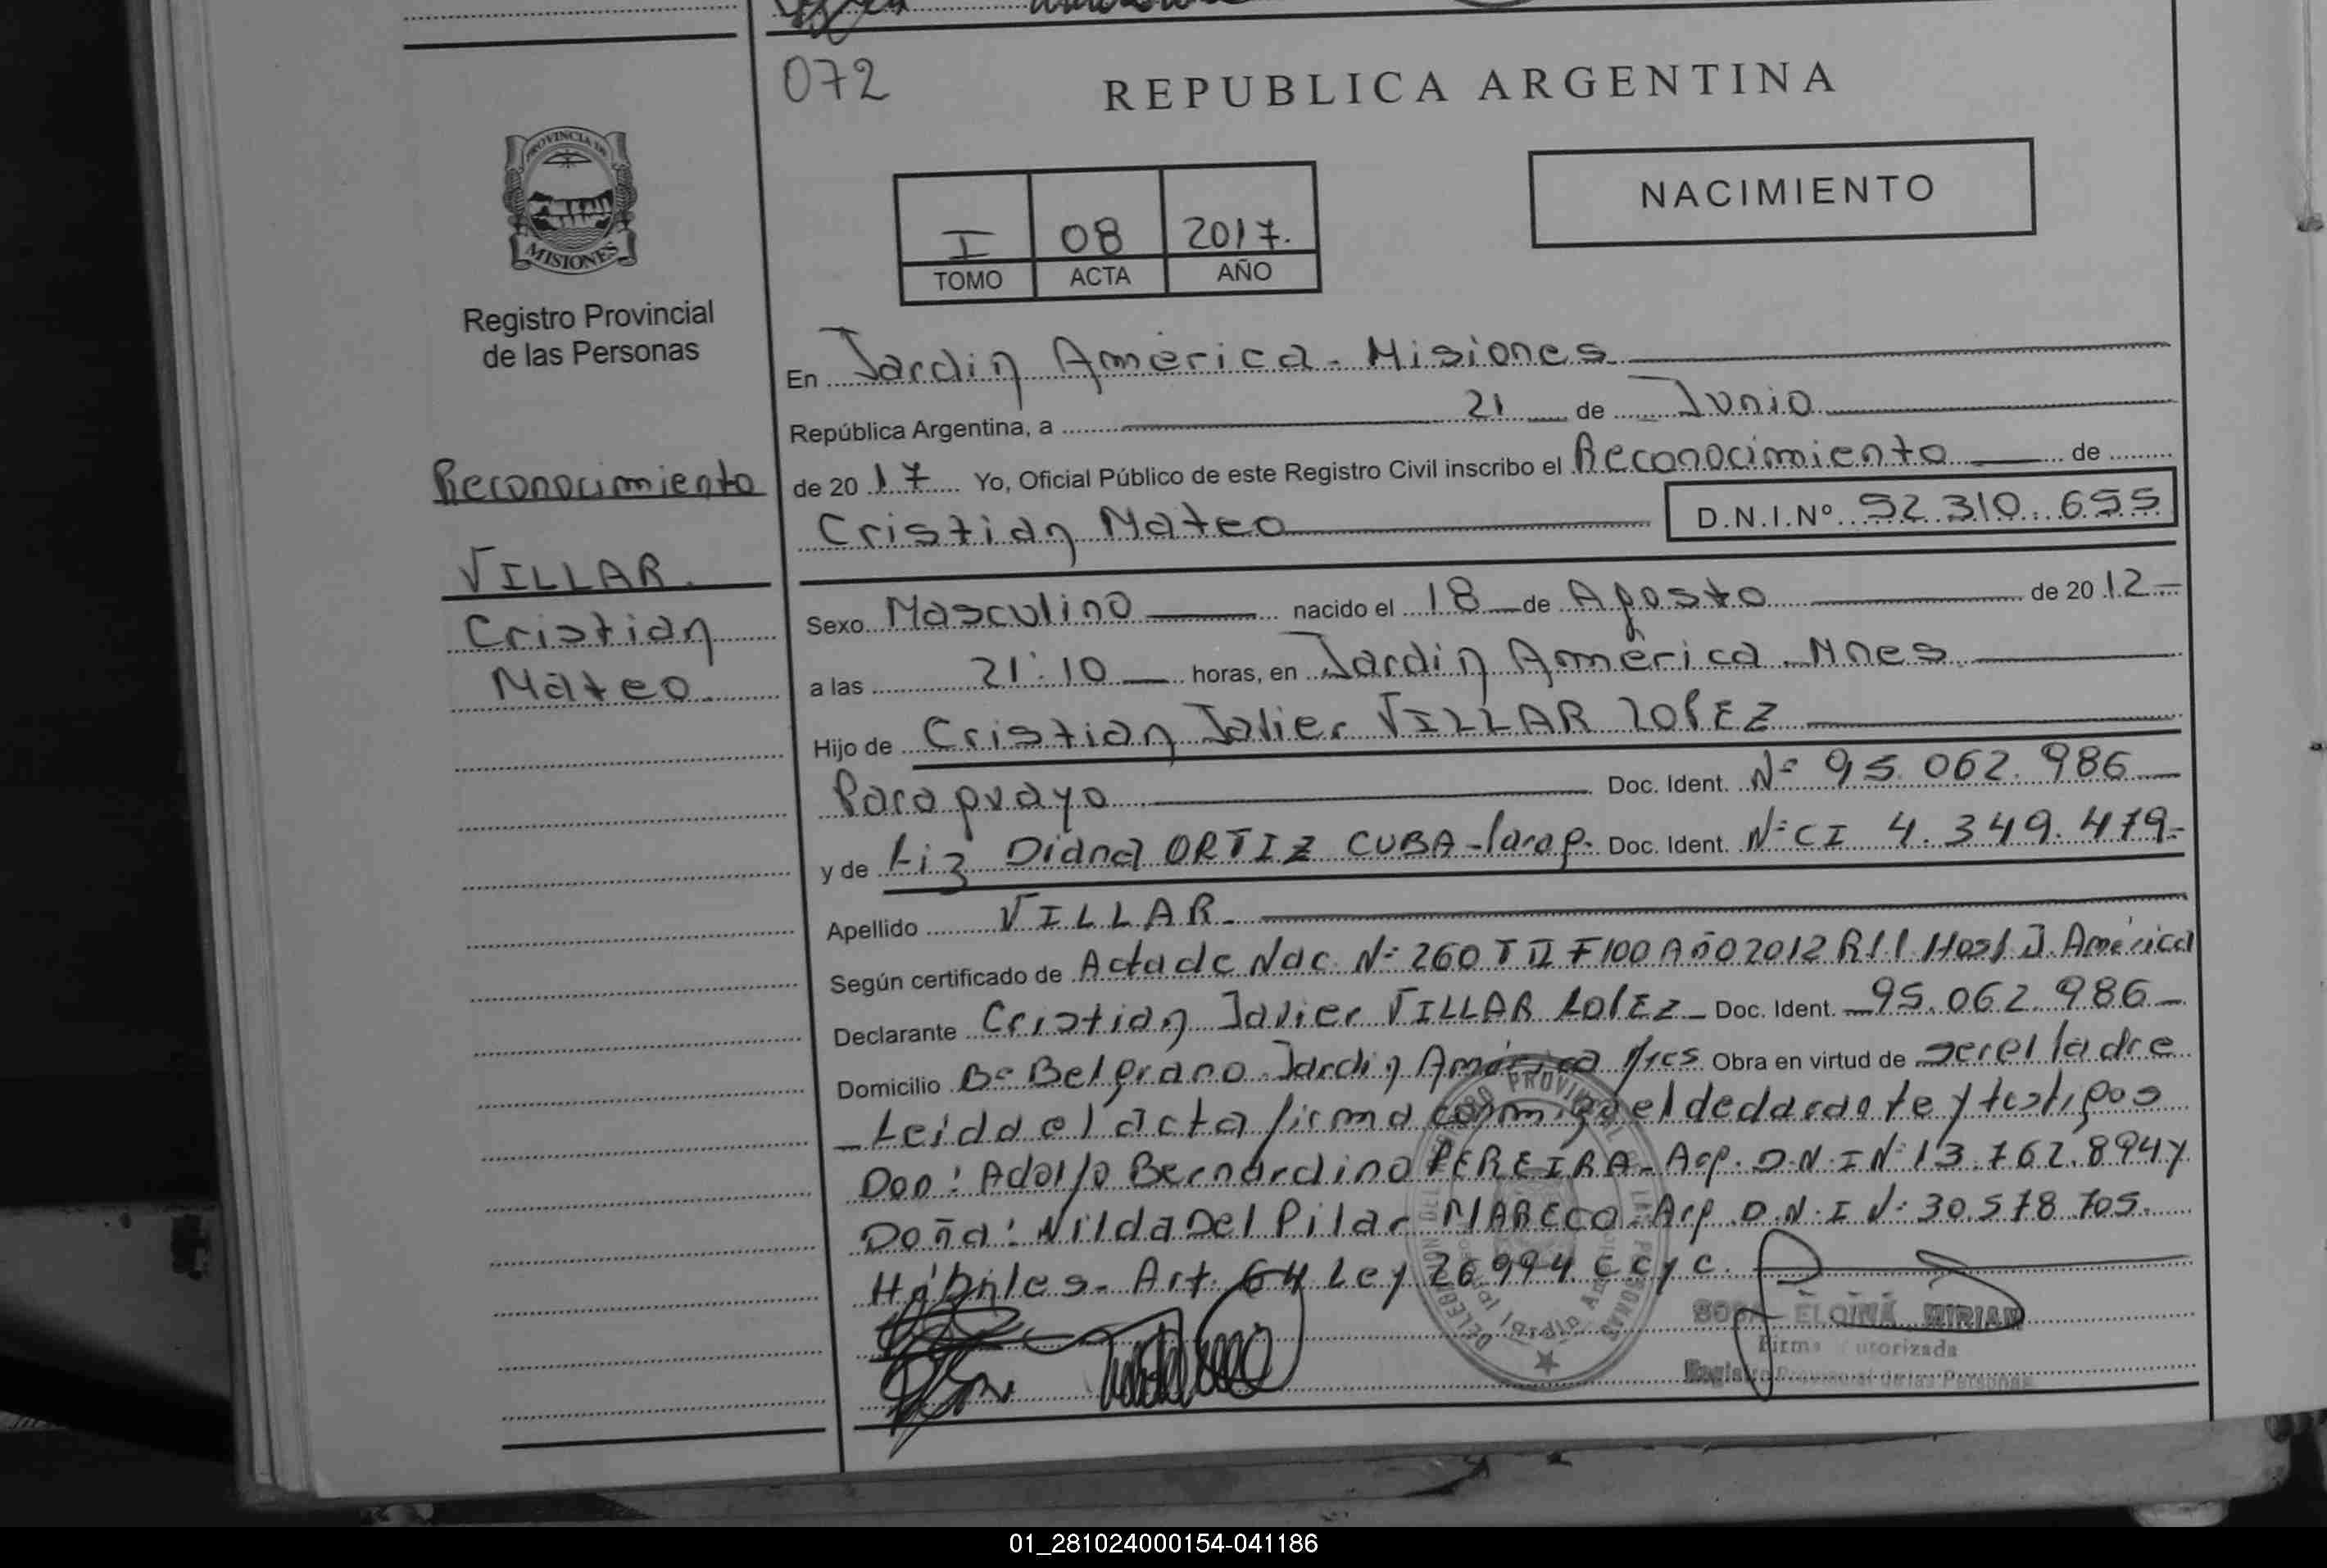 072
REPUBLICA ARGENTINA
PROVINCIA DE
MISIONES
Registro Provincial
de las Personas
NACIMIENTO
I 08 2017.
TOMO ACTA AÑO
Reconocimiento
VILLAR.
Cristian
Mateo.
En Jardin América - Misiones
República Argentina, a 21 de Junio
de 2017 Yo, Oficial Público de este Registro Civil inscribo el Reconocimiento de
Cristian Mateo D.N.I.Nº 52.310.655
Sexo Masculino nacido el 18 de Agosto de 2012-
a las 21:10 horas, en Jardin América - Mnes
Hijo de Cristian Javier VILLAR LOPEZ
Paraguayo Doc. Ident. Nº 95.062.986
y de Liz Diana ORTIZ CUBA - Parag. Doc. Ident. Nº CI 4.349.479-
Apellido VILLAR.
Según certificado de Acta de Nac. Nº 260 T II F 100 Año 2012 R.P.P. Hosp. J. América
Declarante Cristian Javier VILLAR LOPEZ - Doc. Ident. 95.062.986
Domicilio Bº Belgrano. Jardin América Mnes Obra en virtud de ser el Padre
Leida el acta firma conmigo el declarante y testigos
Don: Adolfo Bernardino PEREIRA - Arg. D.N.I Nº 13.762.894 y
Doña: Nilda Del Pilar MARECO - Arg. D.N.I Nº 30.578.705.
Hábiles - Art. 64 Ley 26994 CC y C.
SOSA ELOINA MIRIAN
Firma Autorizada
Registro Provincial de las Personas
01_281024000154-041186